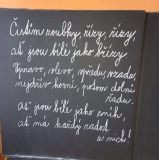 Čistím zoubky, řízy, řízy,
ať jsou bílé jako břízy.
Vpravo, vlevo, vpředu, vzadu,
nejdřív horní, potom dolní
řadu.
Ať jsou bílé jako sníh,
ať má každý radost
z nich!